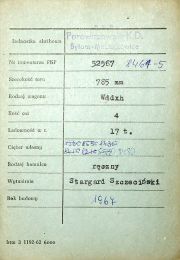 Jednostka służbowa
Parowozownia K.D.
Nr inwentarza PKP 52567 8464-5
Szerokość toru 785 mm
Rodzaj wagonu Wddxh
Ilość osi 4
Ładowność w t. 17 t.
Ciężar własny
Rodzaj hamulca ręczny
Wytwórnia Stargard Szczeciński
Rok budowy 1967